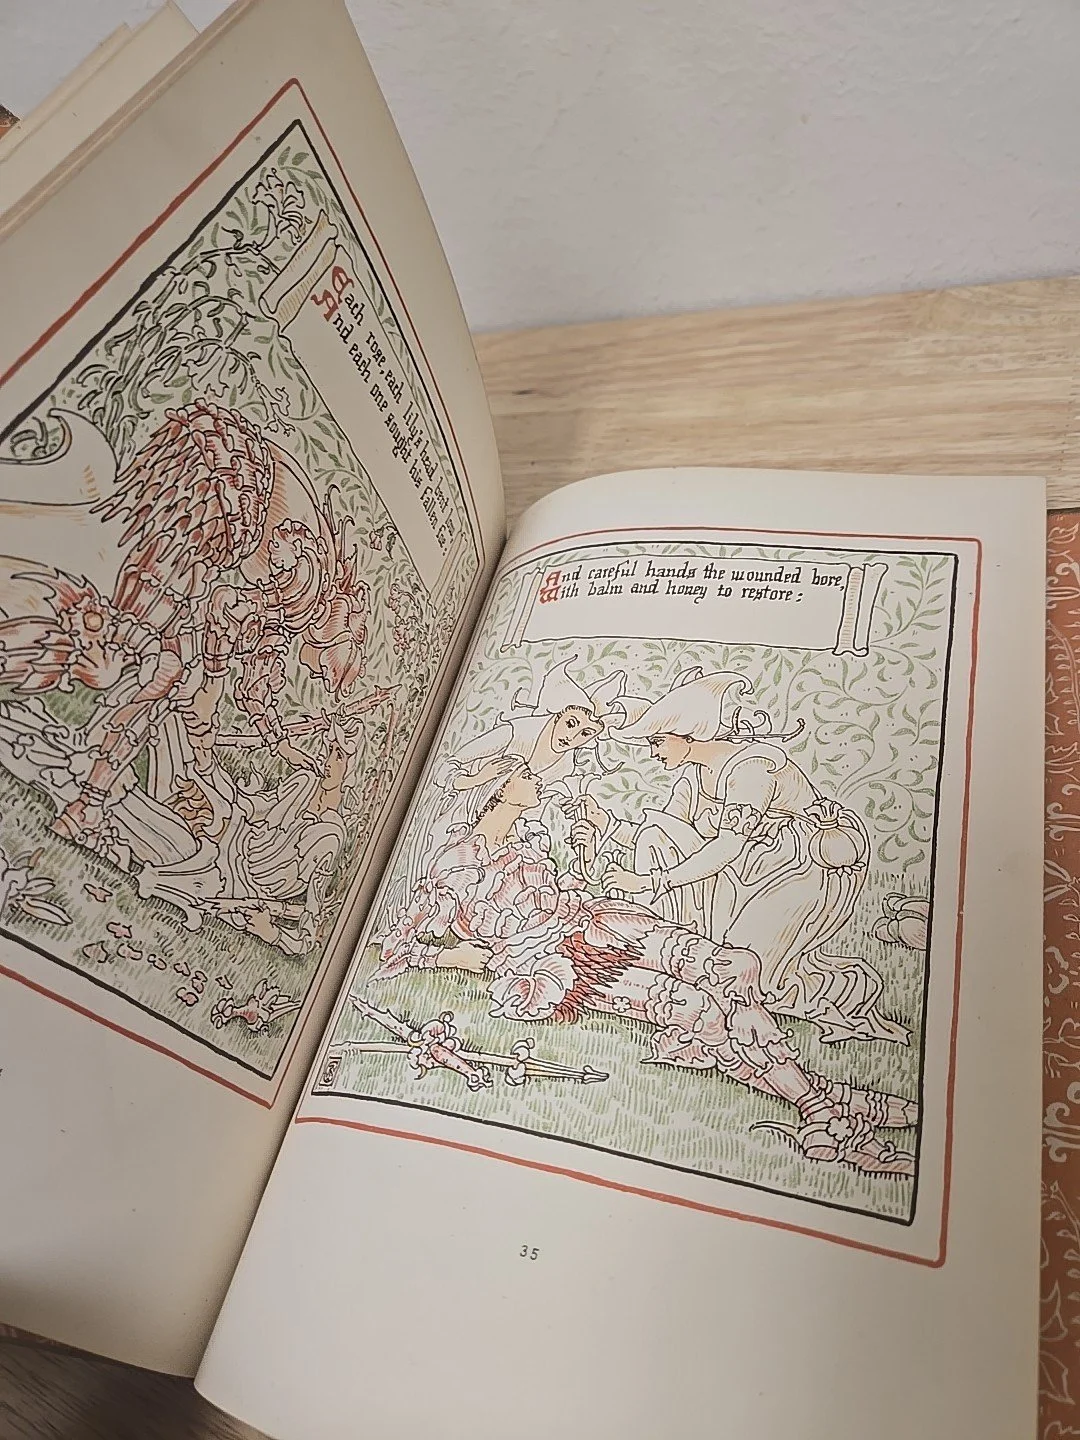 Each rose, each lily's head bent low,
And each one sought his fallen foe,
And careful hands the wounded bore,
With balm and honey to restore:
35